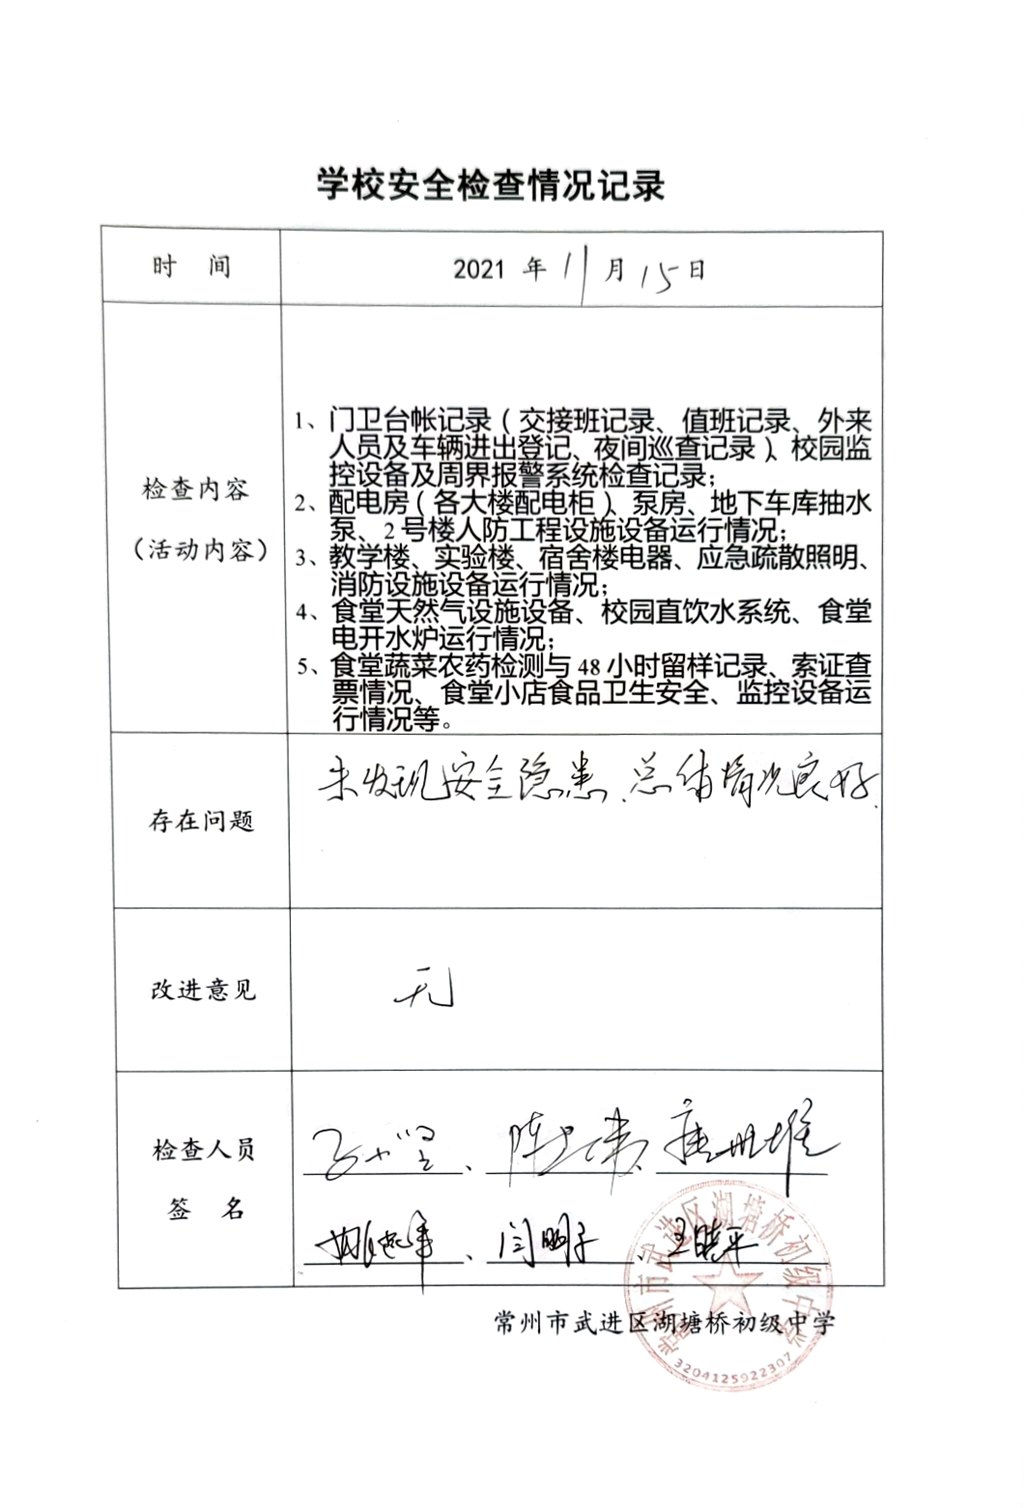 学校安全检查情况记录
时 间
2021 年 11 月 15 日
检查内容
（活动内容）
1、门卫台帐记录（交接班记录、值班记录、外来
人员及车辆进出登记、夜间巡查记录）、校园监
控设备及周界报警系统检查记录；
2、配电房（各大楼配电柜）、泵房、地下车库抽水
泵、2 号楼人防工程设施设备运行情况；
3、教学楼、实验楼、宿舍楼电器、应急疏散照明、
消防设施设备运行情况；
4、食堂天然气设施设备、校园直饮水系统、食堂
电开水炉运行情况；
5、食堂蔬菜农药检测与 48 小时留样记录、索证查
票情况、食堂小店食品卫生安全、监控设备运
行情况等。
存在问题
未发现安全隐患、总体情况良好.
改进意见
无
检查人员
签 名
闫明子、王晓平
常州市武进区湖塘桥初级中学
常州市武进区湖塘桥初级中学
3204125922307